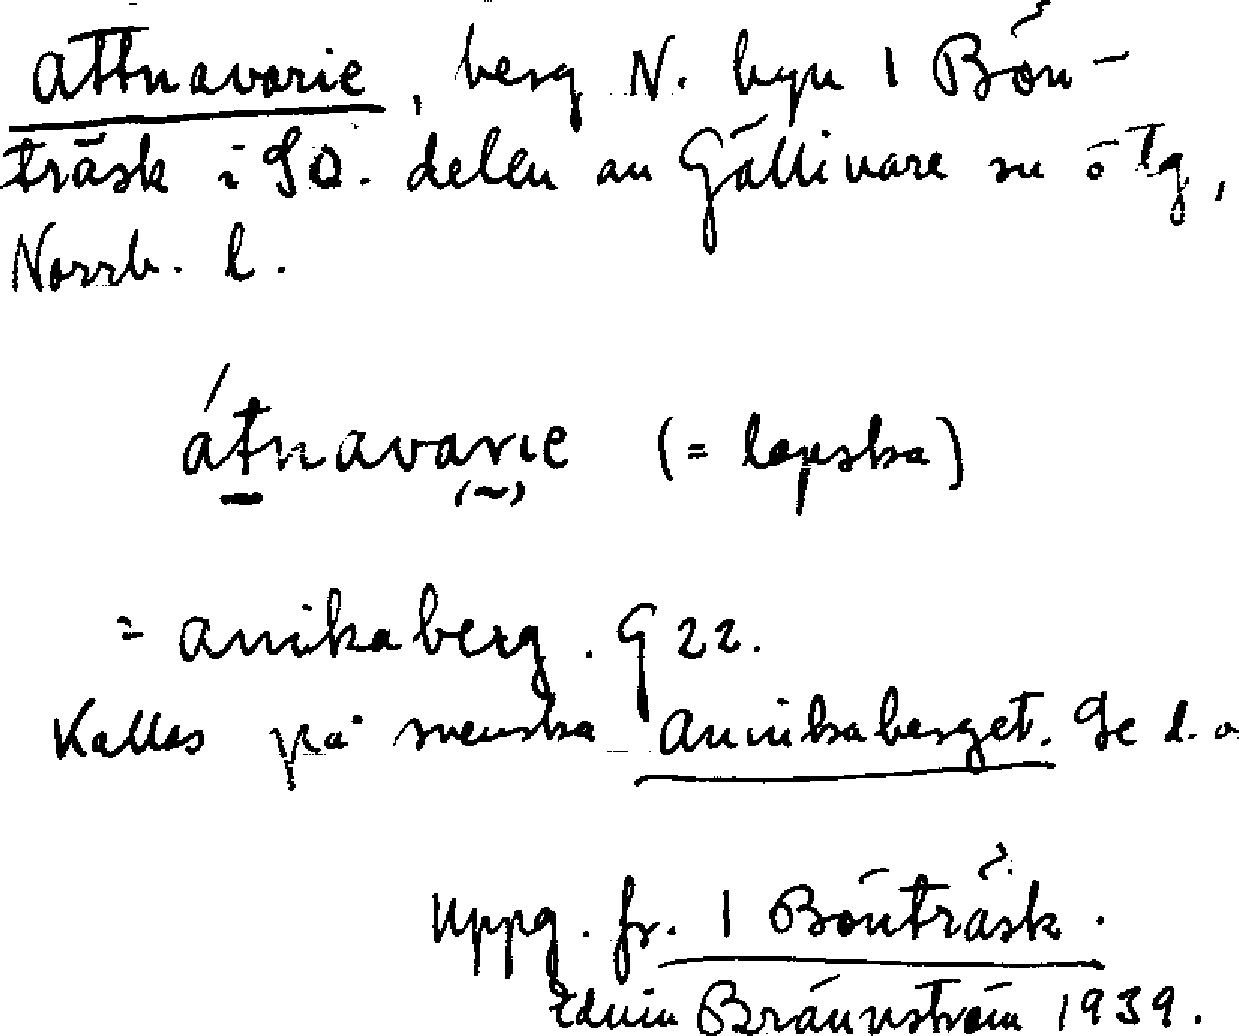 Attnavarie, berg N. byn 1 Bön-
träsk i SO. delen av Gällivare sn ö tg,
Norrb. l.
átnavarie (= lapska)
= anikaberg. G 22.
Kallas på svenska Annikaberget. Se d. o
Uppg. fr. 1 Bönträsk.
Edvin Brännström 1939.